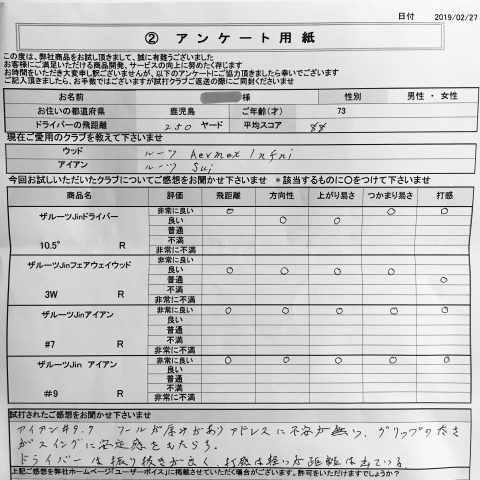 日付 2019/02/27
② アンケート用紙
この度は、弊社商品をお試し頂きまして、誠に有難うございました
お客様にご満足いただける商品開発、サービスの向上に努めたく存じます
お時間をいただき大変申し訳ございませんが、以下のアンケートにご協力頂きましたら幸いでございます
ご記入頂きましたら、お手数ではございますが試打クラブご返送の際にご同封くださいませ
お名前 様 性別 男性 ・ 女性
お住いの都道府県 鹿児島 ご年齢(才) 73
ドライバーの飛距離 250 ヤード 平均スコア 88
現在ご愛用のクラブを教えて下さいませ
ウッド ルーツ Aermax Infni
アイアン ルーツ Sui
今回お試しいただいたクラブについてご感想をお聞かせ下さいませ *該当するものに〇をつけて下さいませ
商品名 評価 飛距離 方向性 上がり易さ つかまり易さ 打感
ザルーツJinドライバー 非常に良い ○ ○ ○
良い ○ ○
普通
10.5° R 不満
非常に不満
ザルーツJinフェアウェイウッド 非常に良い
良い ○ ○ ○ ○
普通 ○
3W R 不満
非常に不満
ザルーツJinアイアン 非常に良い ○ ○ ○ ○ ○
良い
普通
#7 R 不満
非常に不満
ザルーツJin アイアン 非常に良い ○ ○ ○ ○ ○
良い
普通
#9 R 不満
非常に不満
試打されたご感想をお聞かせ下さいませ
アイアン#9.7 ソールが厚みがありアドレスに不安が無い、グリップの太さ
がスイングに安定感をもたらす。
ドライバーは振り抜きが良く、打感は軽いが距離は出ている。
上記ご感想を弊社ホームページ「ユーザーボイス」に掲載させていただく場合がございます。許可をいただけますでしょうか?